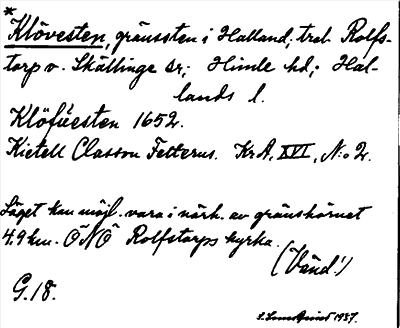 *
Klövesten, gränssten i Halland, trol. Rolfs-
torp v. Skällinge sn; Himle hd; Hal-
lands l.
Klöfüesten 1652.
Kietell Classon Felterus. KrA, XVI, N:o 2.
Läget kan möjl. vara i närh. av gränshörnet
4.9 km. ÖNÖ Rolfstorps kyrka.
(Vänd!)
G.18.
1937.